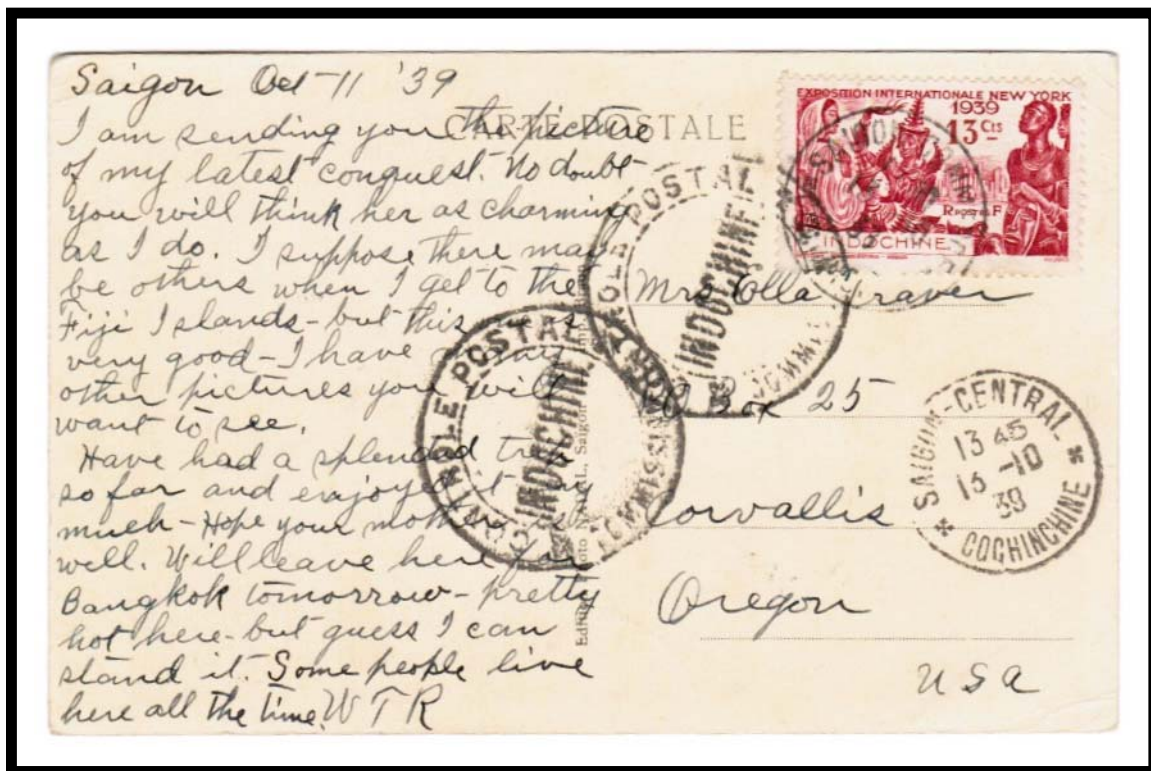 Saigon Oct 11 '39
I am sending you the picture
of my latest conquest. No doubt
you will think her as charming
as I do. I suppose there may
be others when I get to the
Fiji Islands - but this
very good - I have many
other pictures you will
want to see.
Have had a splendid trip
so far and enjoyed it very
much - Hope your mother is
well. Will leave here for
Bangkok tomorrow - pretty
hot here - but guess I can
stand it. Some people live
here all the time. W T R
CARTE POSTALE
EXPOSITION INTERNATIONALE NEW YORK
1939
13 Cts
POSTES
INDOCHINE
CONTROLE POSTAL
INDOCHINE
COMMISSION
CONTROLE POSTAL
INDOCHINE
COMMISSION
Saigon
Mrs Ella Traver
PO Box 25
Corvallis
Oregon
USA
SAIGON-CENTRAL
13 45
13 -10
39
COCHINCHINE